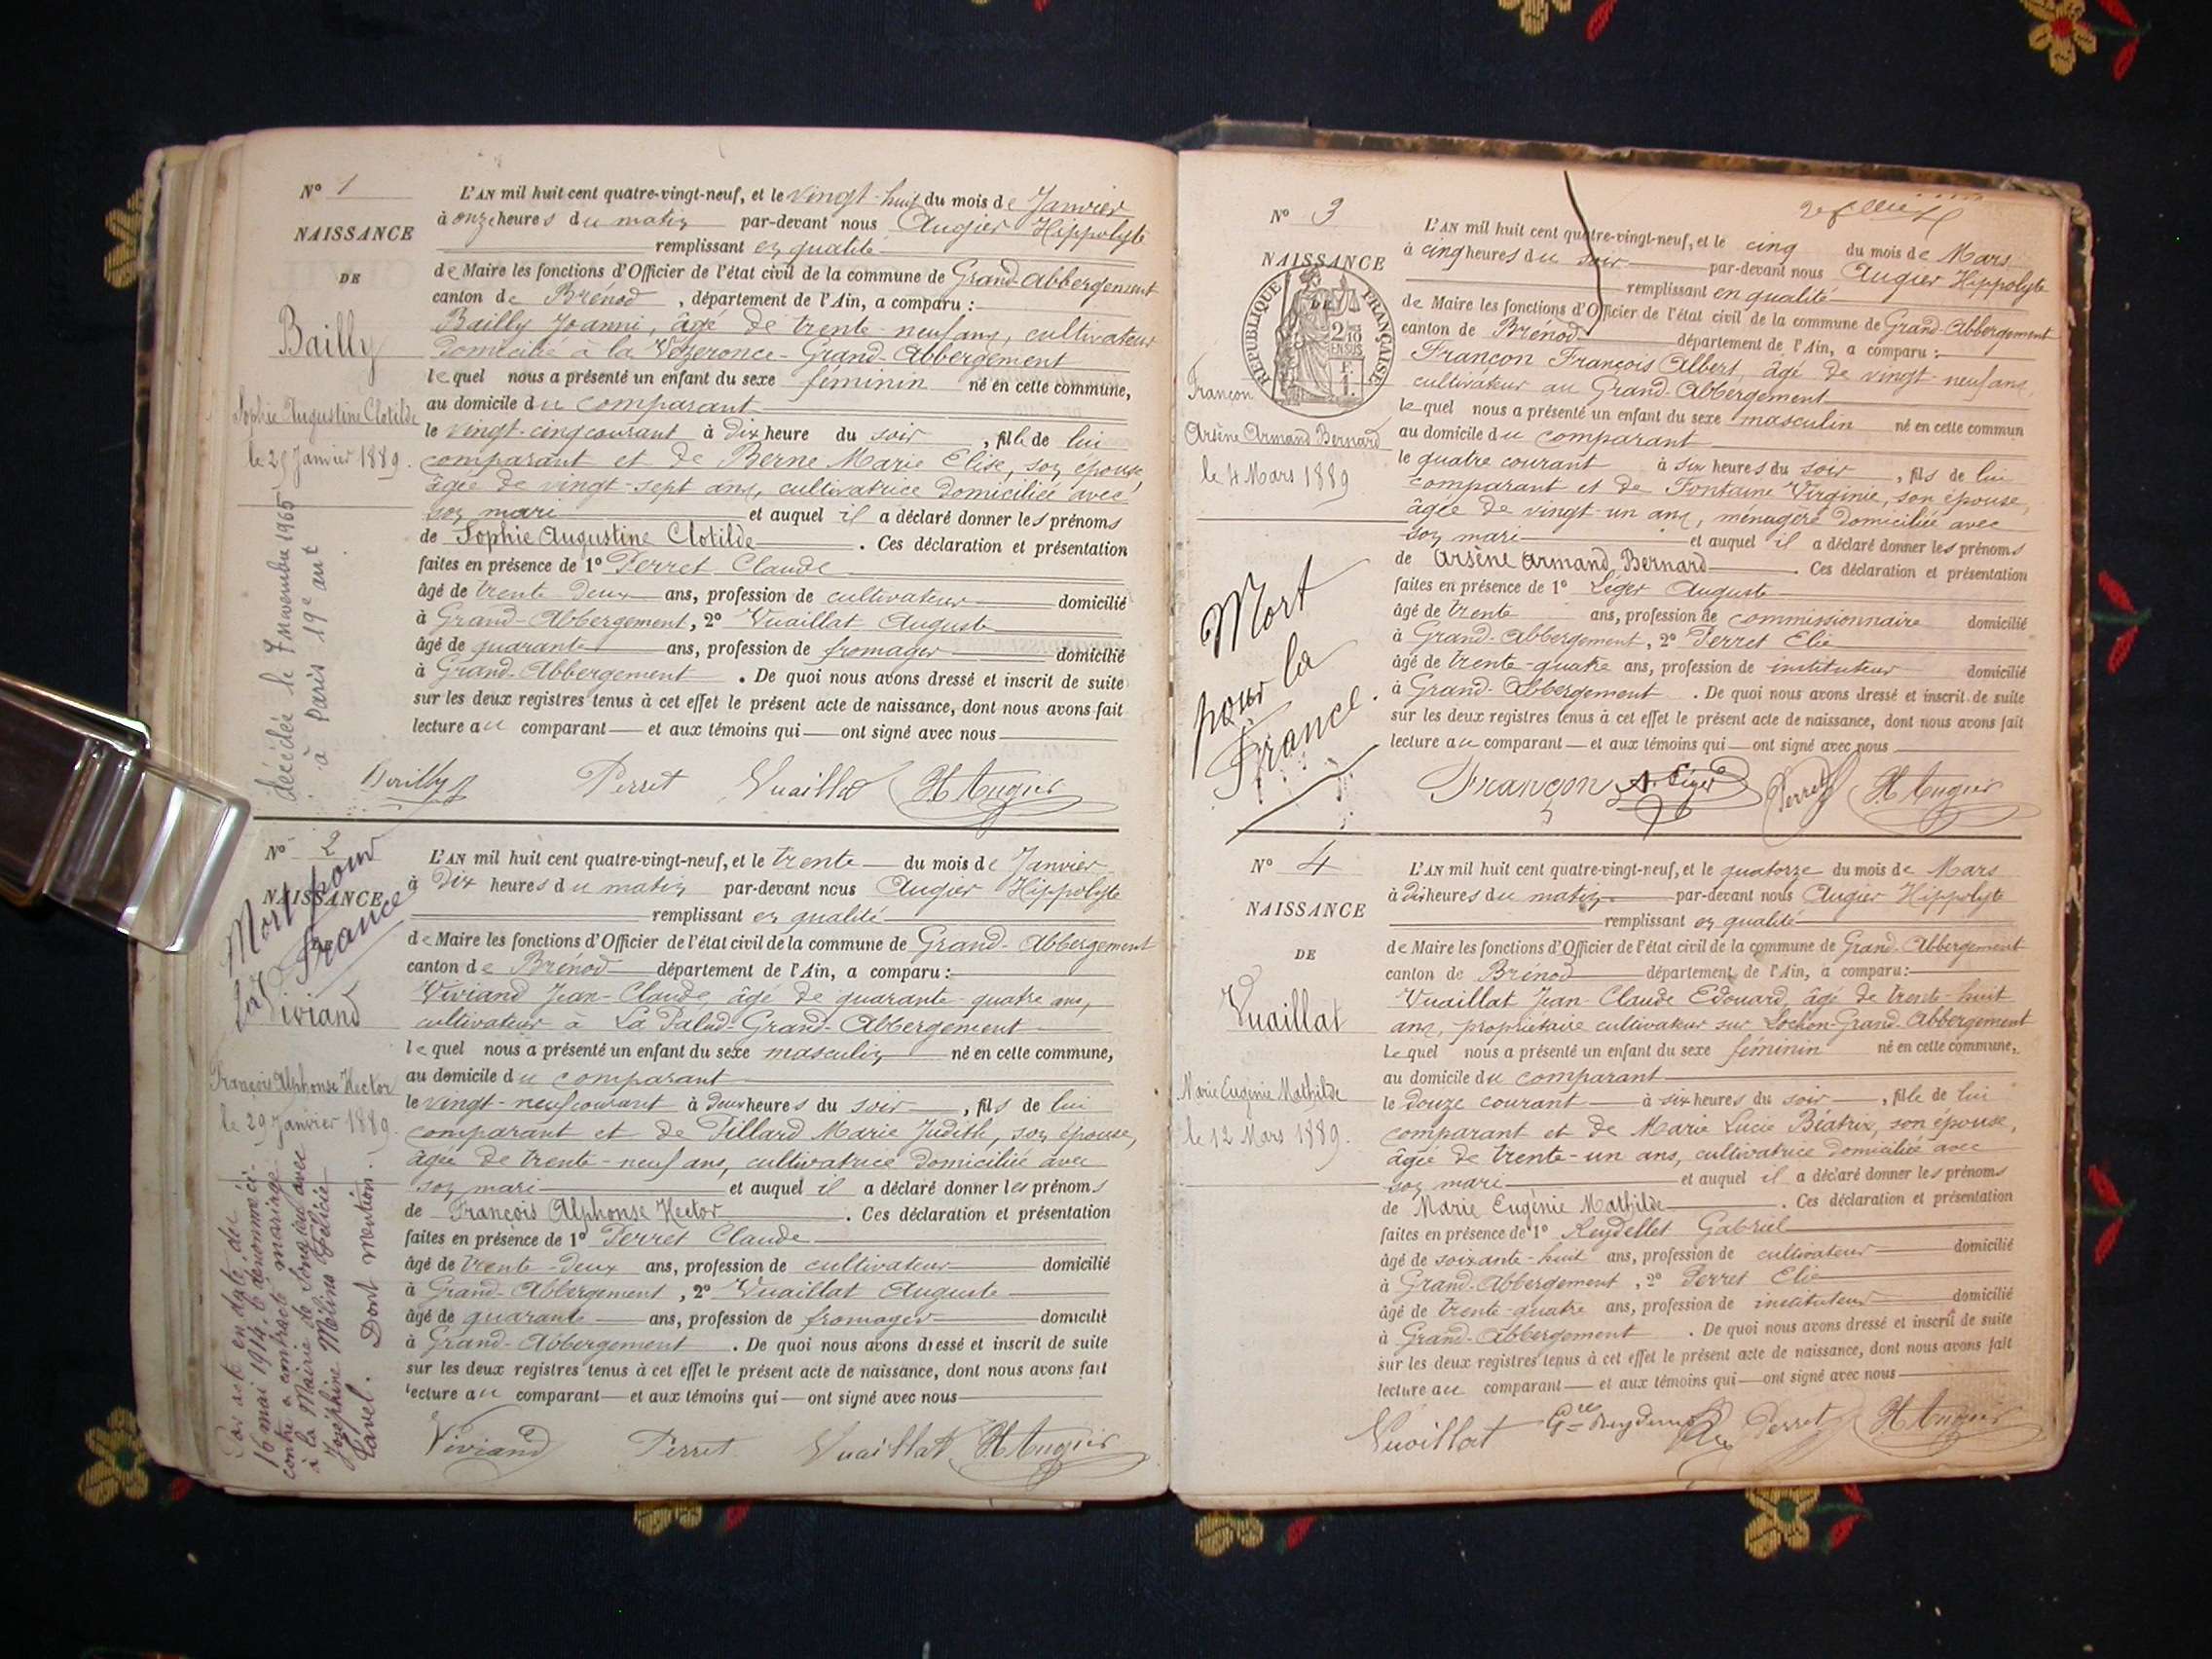 N° 1
NAISSANCE
DE
Bailly
Sophie Augustine Clotilde
le 25 Janvier 1889.
décédée le 7 novembre 1965
à Paris 19e arrt
L'AN mil huit cent quatre-vingt-neuf, et le vingt-huit du mois de Janvier
à onze heures du matin par-devant nous Augier Hippolyte
remplissant en qualité
de Maire les fonctions d'Officier de l'état civil de la commune de Grand-Abbergement
canton de Brénod, département de l'Ain, a comparu :
Bailly Joanni, âgé de trente-neuf ans, cultivateur
domicilié à la Vézeronce-Grand-Abbergement
lequel nous a présenté un enfant du sexe féminin né en cette commune,
au domicile du comparant
le vingt-cinq courant à dix heure du soir, fille de lui
comparant et de Berne Marie Elise, son épouse,
âgée de vingt-sept ans, cultivatrice domiciliée avec
son mari et auquel il a déclaré donner les prénoms
de Sophie Augustine Clotilde. Ces déclaration et présentation
faites en présence de 1° Perret Claude
âgé de trente deux ans, profession de cultivateur domicilié
à Grand-Abbergement, 2° Vuaillat Auguste
âgé de quarante ans, profession de fromager domicilié
à Grand-Abbergement. De quoi nous avons dressé et inscrit de suite
sur les deux registres tenus à cet effet le présent acte de naissance, dont nous avons fait
lecture au comparant et aux témoins qui ont signé avec nous
Bailly Perret Vuaillat H. Augier
N° 2
NAISSANCE
Mort pour
la France
Viviand
François Alphonse Hector
le 29 Janvier 1889.
Par acte en date du
16 mai 1914, le dénommé ci-
contre a contracté mariage
à la Mairie de Songieu avec
Joséphine Mélina Félicie
Ravel. Dont mention.
L'AN mil huit cent quatre-vingt-neuf, et le trente du mois de Janvier
à dix heures du matin par-devant nous Augier Hippolyte
remplissant en qualité
de Maire les fonctions d'Officier de l'état civil de la commune de Grand-Abbergement
canton de Brénod département de l'Ain, a comparu :
Viviand Jean-Claude, âgé de quarante-quatre ans,
cultivateur à La Palud-Grand-Abbergement
lequel nous a présenté un enfant du sexe masculin né en cette commune,
au domicile du comparant
le vingt-neuf courant à deux heures du soir, fils de lui
comparant et de Pillard Marie Judith, son épouse,
âgée de trente-neuf ans, cultivatrice domiciliée avec
son mari et auquel il a déclaré donner les prénoms
de François Alphonse Hector. Ces déclaration et présentation
faites en présence de 1° Perret Claude
âgé de trente-deux ans, profession de cultivateur domicilié
à Grand-Abbergement, 2° Vuaillat Auguste
âgé de quarante ans, profession de fromager domicilié
à Grand-Abbergement. De quoi nous avons dressé et inscrit de suite
sur les deux registres tenus à cet effet le présent acte de naissance, dont nous avons fait
lecture au comparant et aux témoins qui ont signé avec nous
Viviand Perret Vuaillat H. Augier
N° 3
NAISSANCE
DE
RÉPUBLIQUE FRANÇAISE
2/10 EN SUS
1 F.
Françon
Arsène Armand Bernard
le 4 Mars 1889
Mort
pour la
France.
L'AN mil huit cent quatre-vingt-neuf, et le cinq du mois de Mars
à cinq heures du soir par-devant nous Augier Hippolyte
remplissant en qualité
de Maire les fonctions d'Officier de l'état civil de la commune de Grand-Abbergement
canton de Brénod département de l'Ain, a comparu :
Françon François Albert, âgé de vingt-neuf ans,
cultivateur au Grand-Abbergement
lequel nous a présenté un enfant du sexe masculin né en cette commun
au domicile du comparant
le quatre courant à six heures du soir, fils de lui
comparant et de Fontaine Virginie, son épouse,
âgée de vingt-un ans, ménagère domiciliée avec
son mari et auquel il a déclaré donner les prénoms
de Arsène Armand Bernard. Ces déclaration et présentation
faites en présence de 1° Léger Auguste
âgé de trente ans, profession de commissionnaire domicilié
à Grand-Abbergement, 2° Perret Elie
âgé de trente-quatre ans, profession de instituteur domicilié
à Grand-Abbergement. De quoi nous avons dressé et inscrit de suite
sur les deux registres tenus à cet effet le présent acte de naissance, dont nous avons fait
lecture au comparant et aux témoins qui ont signé avec nous
Françon A. Léger Perret H. Augier
N° 4
NAISSANCE
DE
Vuaillat
Marie Eugénie Mathilde
le 12 Mars 1889.
L'AN mil huit cent quatre-vingt-neuf, et le quatorze du mois de Mars
à dix heures du matin par-devant nous Augier Hippolyte
remplissant en qualité
de Maire les fonctions d'Officier de l'état civil de la commune de Grand-Abbergement
canton de Brénod département de l'Ain, a comparu :
Vuaillat Jean-Claude Edouard, âgé de trente-huit
ans, propriétaire cultivateur sur Lochon-Grand-Abbergement
lequel nous a présenté un enfant du sexe féminin né en cette commune,
au domicile du comparant
le douze courant à six heures du soir, fille de lui
comparant et de Marie Lucie Béatrix, son épouse,
âgée de trente-un ans, cultivatrice domiciliée avec
son mari et auquel il a déclaré donner les prénoms
de Marie Eugénie Mathilde. Ces déclaration et présentation
faites en présence de 1° Reydellet Gabriel
âgé de soixante-huit ans, profession de cultivateur domicilié
à Grand-Abbergement, 2° Perret Elie
âgé de trente-quatre ans, profession de instituteur domicilié
à Grand-Abbergement. De quoi nous avons dressé et inscrit de suite
sur les deux registres tenus à cet effet le présent acte de naissance, dont nous avons fait
lecture au comparant et aux témoins qui ont signé avec nous
Vuaillat Perret H. Augier